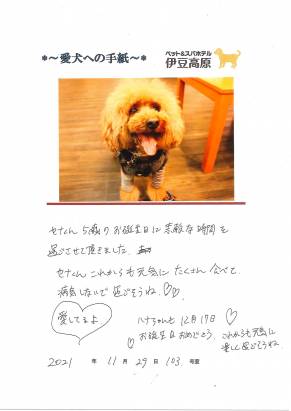 *～愛犬への手紙～*
ペット&スパホテル
伊豆高原
セナくん 5歳の お誕生日に 素敵な 時間を
過ごさせて頂きました。
セナくん これからも 元気に たくさん 食べて
病気しないで 過ごそうね♡♡
愛してるよ
ハナちゃんも 12月17日
お誕生日おめでとう♡
これからも元気に
楽しく過ごそうね
2021 年 11 月 29 日 103 号室